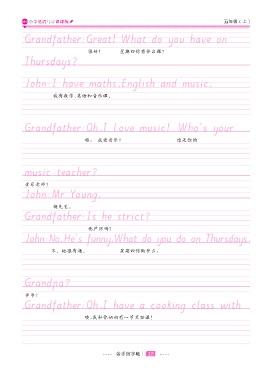 小学英语写字课课练
五年级(上)
Grandfather:Great! What do you have on
很好! 星期四你有什么课?
Thursdays?
John:I have maths,English and music.
我有数学、英语和音乐课。
Grandfather:Oh,I love music! Who's your
哦,我爱音乐! 谁是你的
music teacher?
音乐老师?
John:Mr Young.
杨先生。
Grandfather:Is he strict?
他严厉吗?
John:No.He's funny.What do you do on Thursdays,
不,他很有趣。 星期四你做什么,
Grandpa?
爷爷?
Grandfather:Oh,I have a cooking class with
哦,我和你奶奶有一节烹饪课!